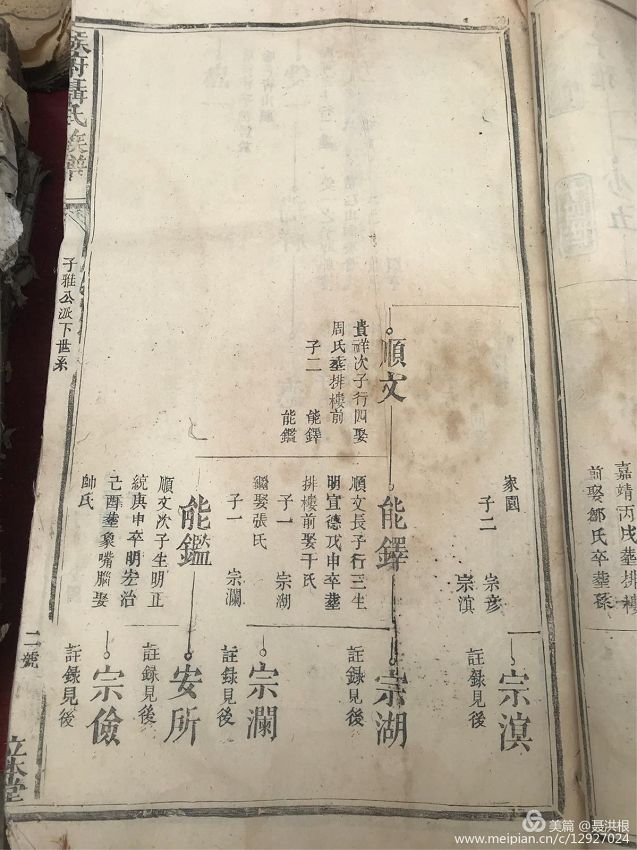 嘉靖丙戌葬排樓
前娶鄒氏卒葬孫
家園
子二
宗彥
宗滇
宗滇
註錄見後
順文
貴祥次子行四娶
周氏葬排樓前
子二
能鐸
能鑑
能鐸
順文長子行三生
明宣德戊申卒葬
排樓前娶干氏
子一
宗湖
繼娶張氏
子一
宗瀾
宗湖
註錄見後
宗瀾
註錄見後
能鑑
順文次子生明正
統庚申卒明宏治
己酉葬象嘴腦娶
帥氏
安所
註錄見後
宗儉
註錄見後
聶氏族譜
子雅公派下世系
二號
立本堂
美篇 @聂洪根
www.meipian.cn/c/12927024